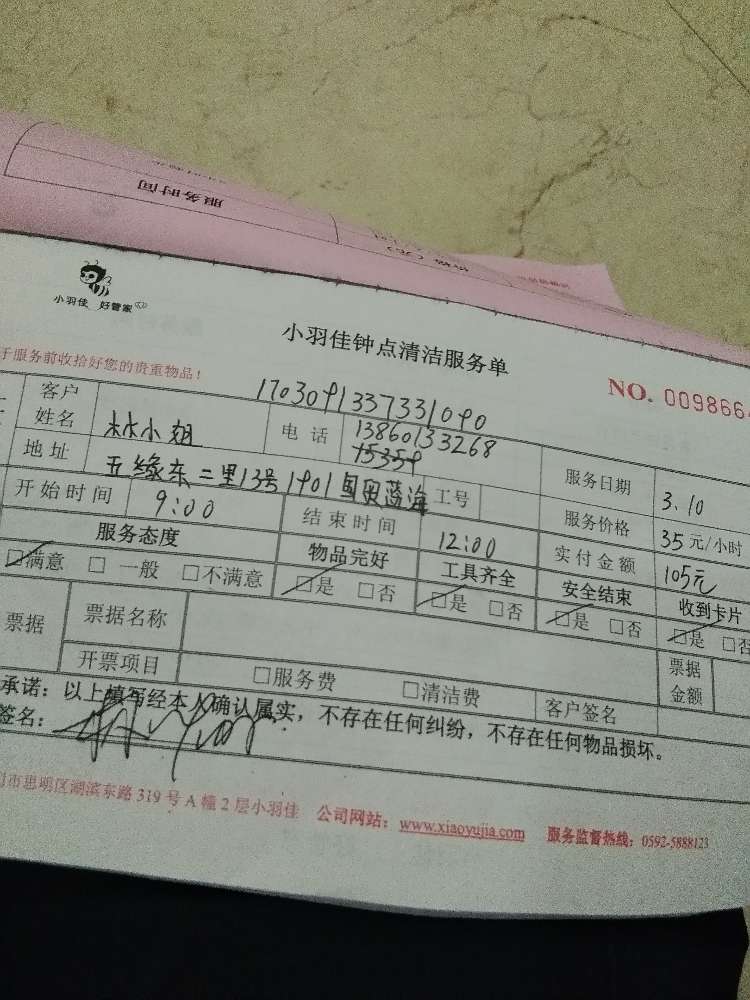 服务时间
小羽佳 好管家
小羽佳钟点清洁服务单
于服务前收拾好您的贵重物品！
NO. 0098664
1703091337331090
客户姓名 林小姐 电话 13860133268 服务日期 3.10
15359
地址 五缘东二里13号1901国贸蓝海 工号 服务价格 35元/小时
开始时间 9:00 结束时间 12:00 实付金额 105元
服务态度 物品完好 工具齐全 安全结束 收到卡片
☑满意 □一般 □不满意 ☑是 □否 ☑是 □否 ☑是 □否 ☑是 □否
票据 票据名称 票据金额
开票项目 □服务费 □清洁费 客户签名
承诺：以上填写经本人确认属实，不存在任何纠纷，不存在任何物品损坏。
签名：
市思明区湖滨东路319号A幢2层小羽佳 公司网站：www.xiaoyujia.com 服务监督热线：0592-5888123